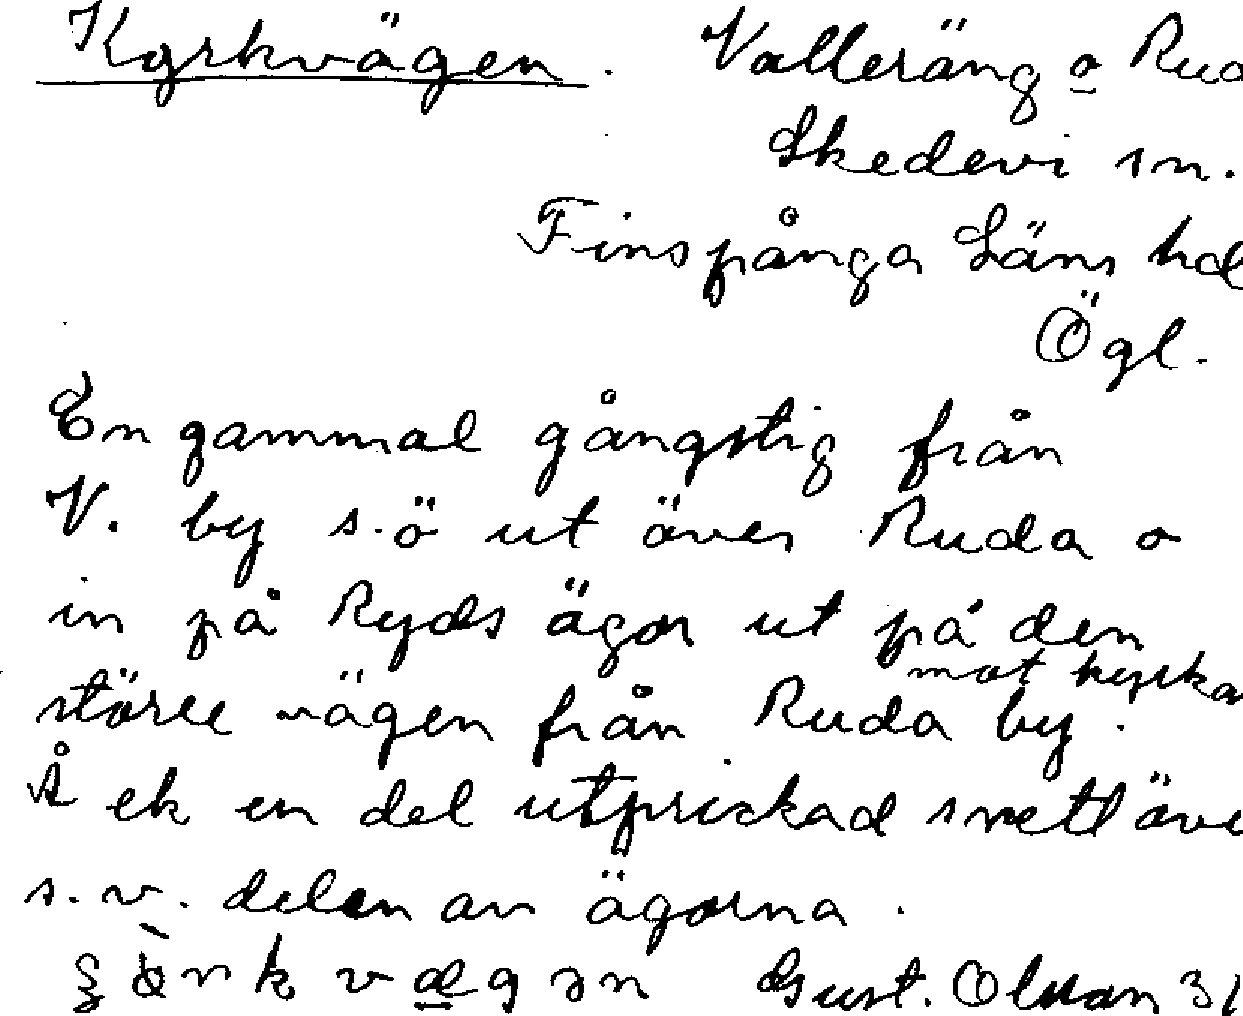 Kyrkvägen. Valleräng o Ruda
Skedevi sn.
Finspånga Läns hd
Ögl.
En gammal gångstig från
V. by s.ö ut över Ruda o
in på Ryds ägor ut på den
större vägen från Ruda by mot kyrkan.
Å ek en del utprickad snett över
s.v. delen av ägorna.
Gust. Olsson 31